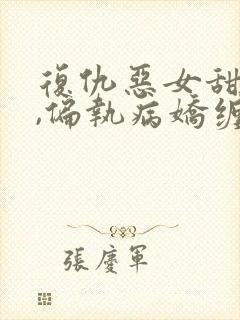 復仇惡女甜
,偏執病嬌纏
張慶軍